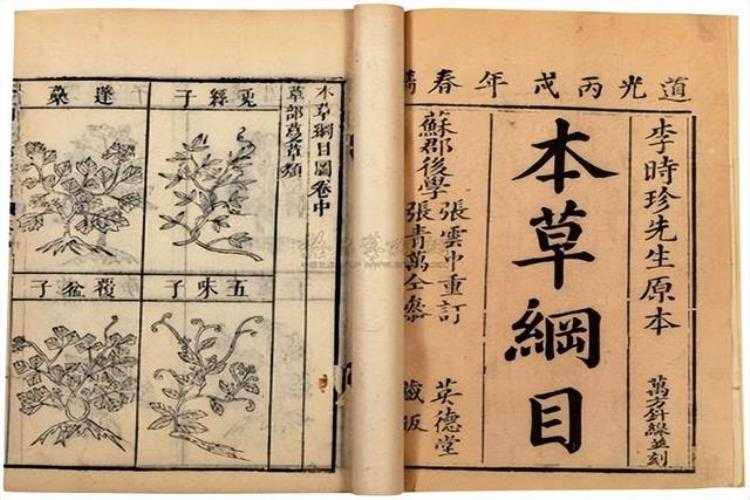 道光丙戌年春
李時珍先生原本
萬方針線並刻
本草綱目
蘇郡後學
張雲中重訂
張青萬仝參
英德堂
藏板
本草綱目圖卷中
草部蔓草類
兎絲子
蓬蘽
五味子
覆盆子